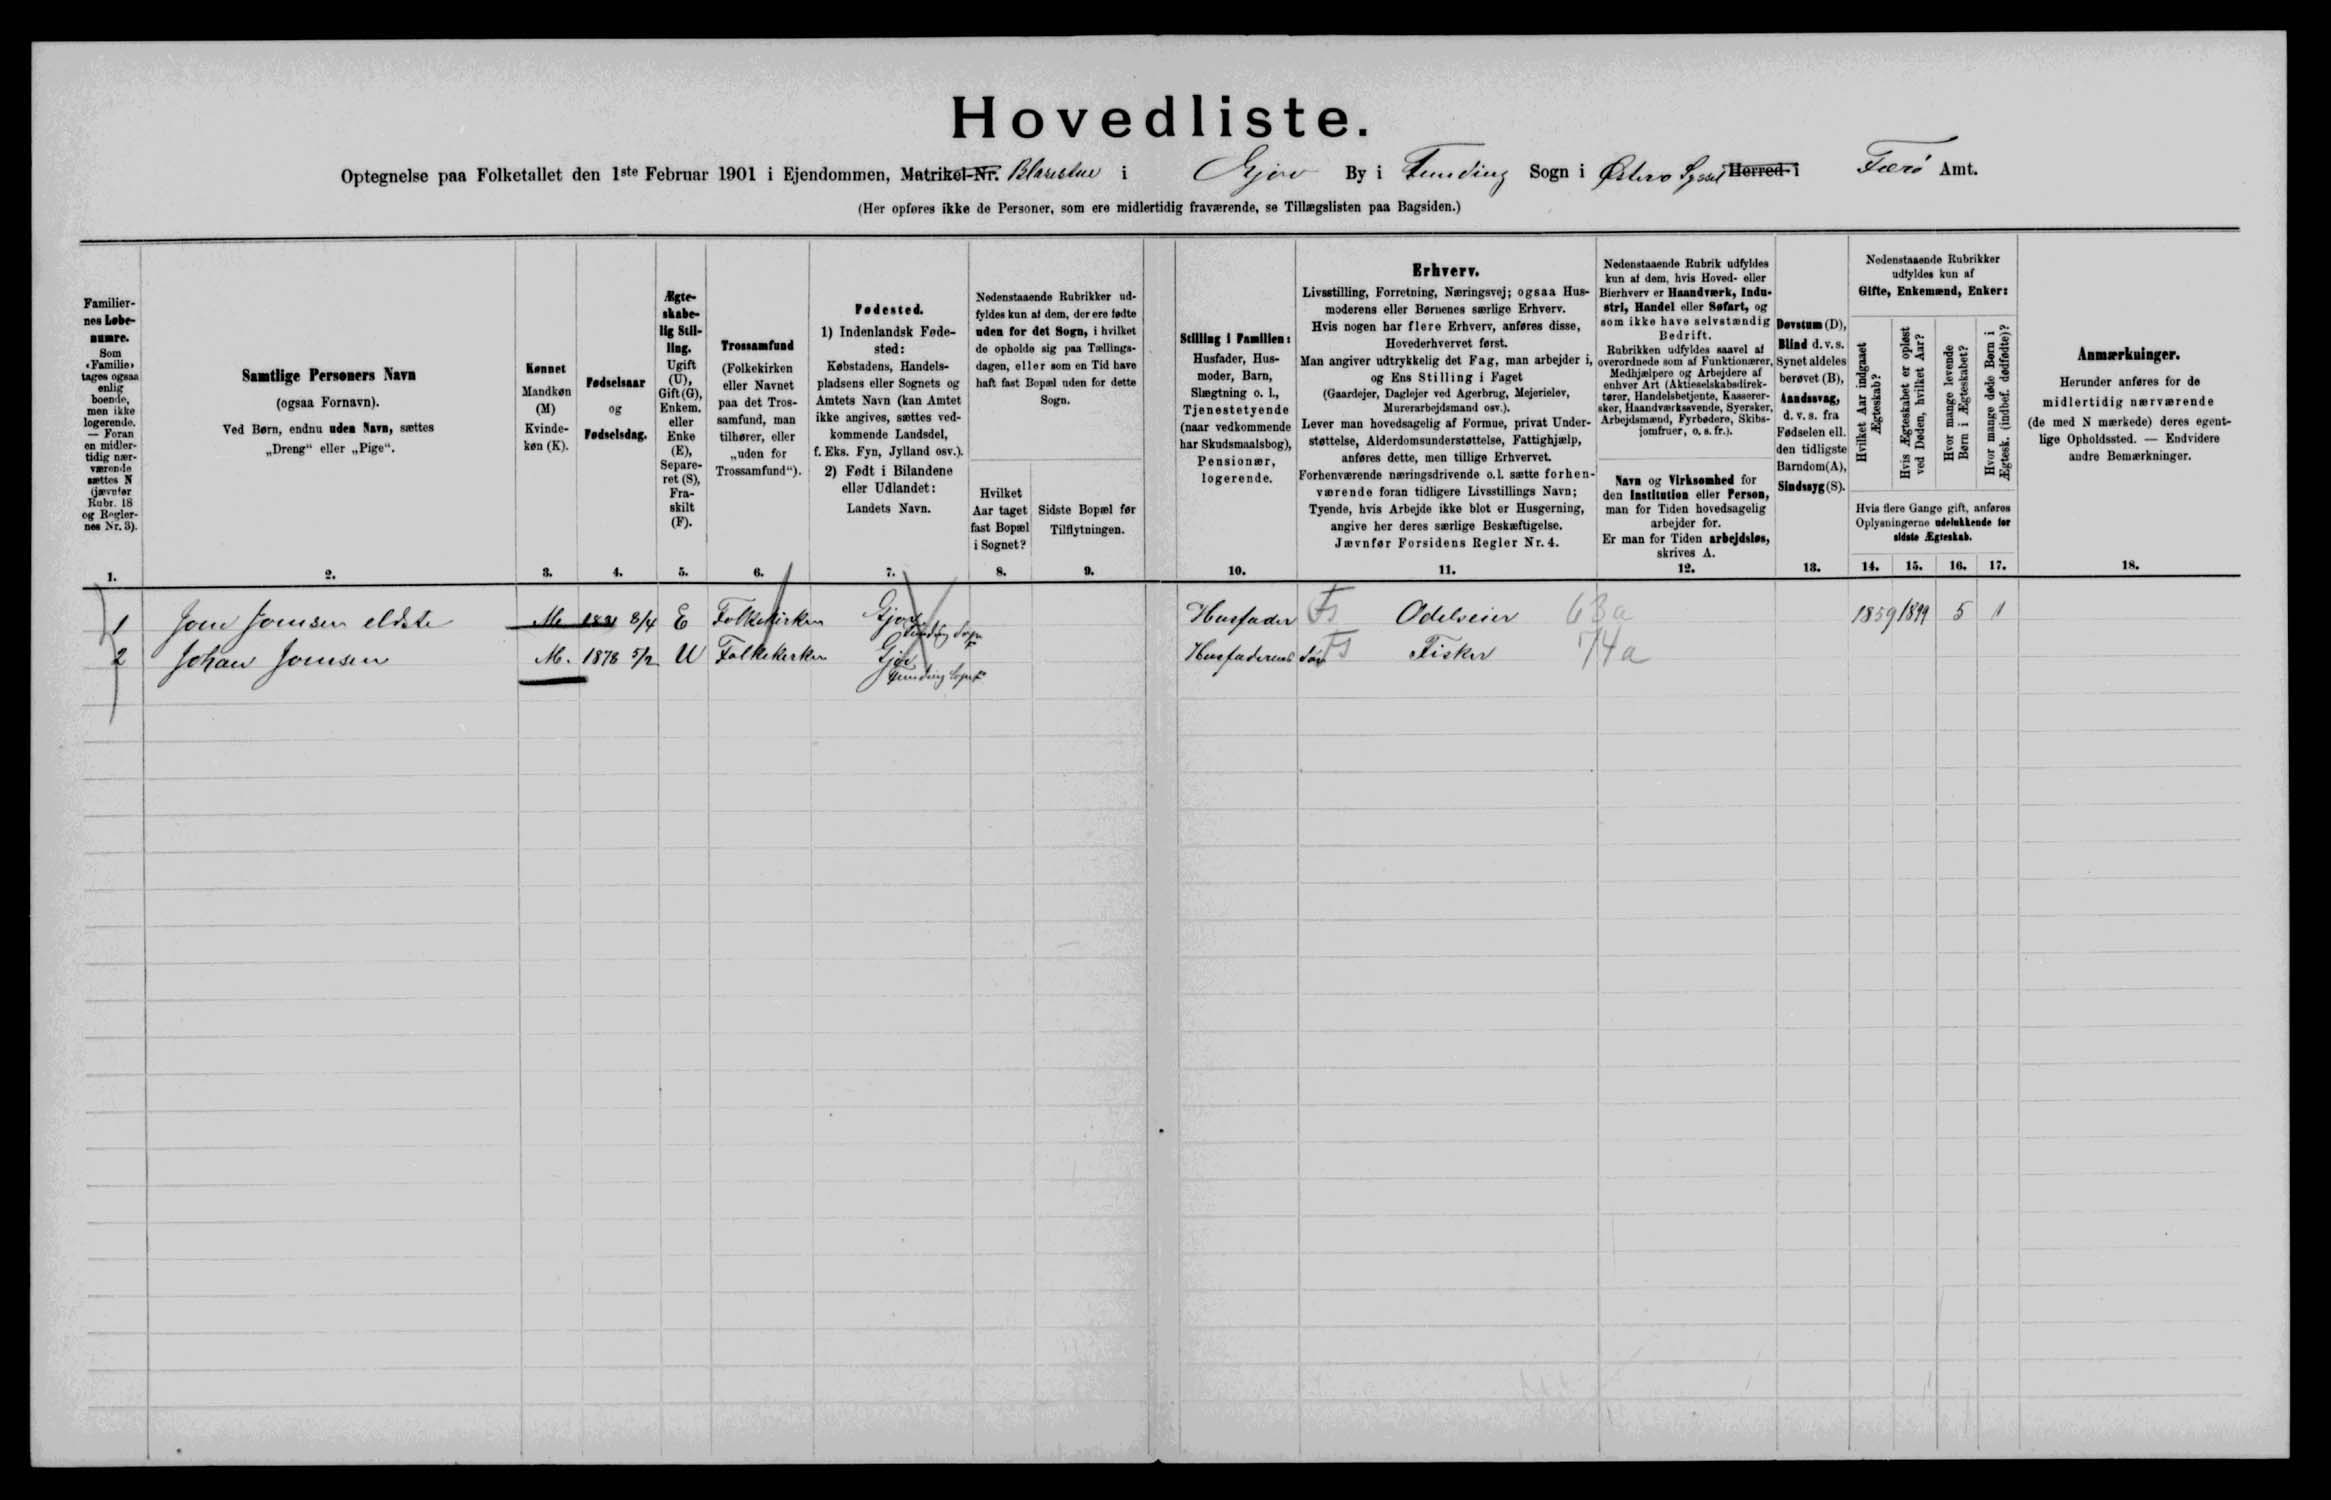 Hovedliste.
Optegnelse paa Folketallet den 1ste Februar 1901 i Ejendommen, Matrikel-Nr. i Gjov By i Funding Sogn i Østerø Syssel Herred i Færø Amt.
(Her opføres ikke de Personer, som ere midlertidig fraværende, se Tillægslisten paa Bagsiden.)
Familier-
nes Løbe-
numre.
Som
«Familie»
tages ogsaa
enlig
boende,
men ikke
logerende.
— Foran
en midler-
tidig nær-
værende
sættes N
(jævnfør
Rubr. 18
og Regler-
nes Nr. 3).
1.
Samtlige Personers Navn
(ogsaa Fornavn).
Ved Børn, endnu uden Navn, sættes
„Dreng“ eller „Pige“.
2.
Kønnet
Mandkøn
(M)
Kvinde-
køn (K).
3.
Fødselsaar
og
Fødselsdag.
4.
Ægte-
skabe-
lig Stil-
ling.
Ugift
(U),
Gift (G),
Enkem.
eller
Enke
(E),
Separe-
ret (S),
Fra-
skilt
(F).
5.
Trossamfund
(Folkekirken
eller Navnet
paa det Tros-
samfund, man
tilhører, eller
„uden for
Trossamfund“).
6.
Fødested.
1) Indenlandsk Føde-
sted:
Købstadens, Handels-
pladsens eller Sognets og
Amtets Navn (kan Amtet
ikke angives, sættes ved-
kommende Landsdel,
f. Eks. Fyn, Jylland osv.).
2) Født i Bilandene
eller Udlandet:
Landets Navn.
7.
Nedenstaaende Rubrikker ud-
fyldes kun af dem, der ere fødte
uden for det Sogn, i hvilket
de opholde sig paa Tællings-
dagen, eller som en Tid have
haft fast Bopæl uden for dette
Sogn.
Hvilket
Aar taget
fast Bopæl
i Sognet?
8.
Sidste Bopæl før
Tilflytningen.
9.
Stilling i Familien:
Husfader, Hus-
moder, Barn,
Slægtning o. l.,
Tjenestetyende
(naar vedkommende
har Skudsmaalsbog),
Pensionær,
logerende.
10.
Erhverv.
Livsstilling, Forretning, Næringsvej; ogsaa Hus-
moderens eller Børnenes særlige Erhverv.
Hvis nogen har flere Erhverv, anføres disse,
Hovederhvervet først.
Man angiver udtrykkelig det Fag, man arbejder i,
og Ens Stilling i Faget
(Gaardejer, Daglejer ved Agerbrug, Mejerielev,
Murerarbejdsmand osv.).
Lever man hovedsagelig af Formue, privat Under-
støttelse, Alderdomsunderstøttelse, Fattighjælp,
anføres dette, men tillige Erhvervet.
Forhenværende næringsdrivende o.l. sætte forhen-
værende foran tidligere Livsstillings Navn;
Tyende, hvis Arbejde ikke blot er Husgerning,
angive her deres særlige Beskæftigelse.
Jævnfør Forsidens Regler Nr. 4.
11.
Nedenstaaende Rubrik udfyldes
kun af dem, hvis Hoved- eller
Bierhverv er Haandværk, Indu-
stri, Handel eller Søfart, og
som ikke have selvstændig
Bedrift.
Rubrikken udfyldes saavel af
overordnede som af Funktionærer,
Medhjælpere og Arbejdere af
enhver Art (Aktieselskabsdirek-
tører, Handelsbetjente, Kasserer-
sker, Haandværkssvende, Syersker,
Arbejdsmænd, Fyrbødere, Skibs-
jomfruer, o. s. fr.).
Navn og Virksomhed for
den Institution eller Person,
man for Tiden hovedsagelig
arbejder for.
Er man for Tiden arbejdsløs,
skrives A.
12.
Døvstum (D),
Blind d. v. s.
Synet aldeles
berøvet (B),
Aandssvag,
d. v. s. fra
Fødselen ell.
den tidligste
Barndom (A),
Sindssyg (S).
13.
Nedenstaaende Rubrikker
udfyldes kun af
Gifte, Enkemænd, Enker:
Hvilket Aar indgaaet
Ægteskab?
Hvis Ægteskabet er opløst
ved Døden, hvilket Aar?
Hvor mange levende
Børn i Ægteskabet?
Hvor mange døde Børn i
Ægtesk. (indbef. dødfødte)?
Hvis flere Gange gift, anføres
Oplysningerne udelukkende for
sidste Ægteskab.
14. 15. 16. 17.
Anmærkninger.
Herunder anføres for de
midlertidig nærværende
(de med N mærkede) deres egent-
lige Opholdssted. — Endvidere
andre Bemærkninger.
18.
1 Jone Joensen eldste M 8/4 E Folkekirken Gjov Funding Sogn Husfader Fs Odelseier 63a 1859 1899 5 1
2 Johan Joensen M. 1878 5/2 U Folkekirken Gjov Funding Sogn Husfaderens Søn Fs Fisker 74a